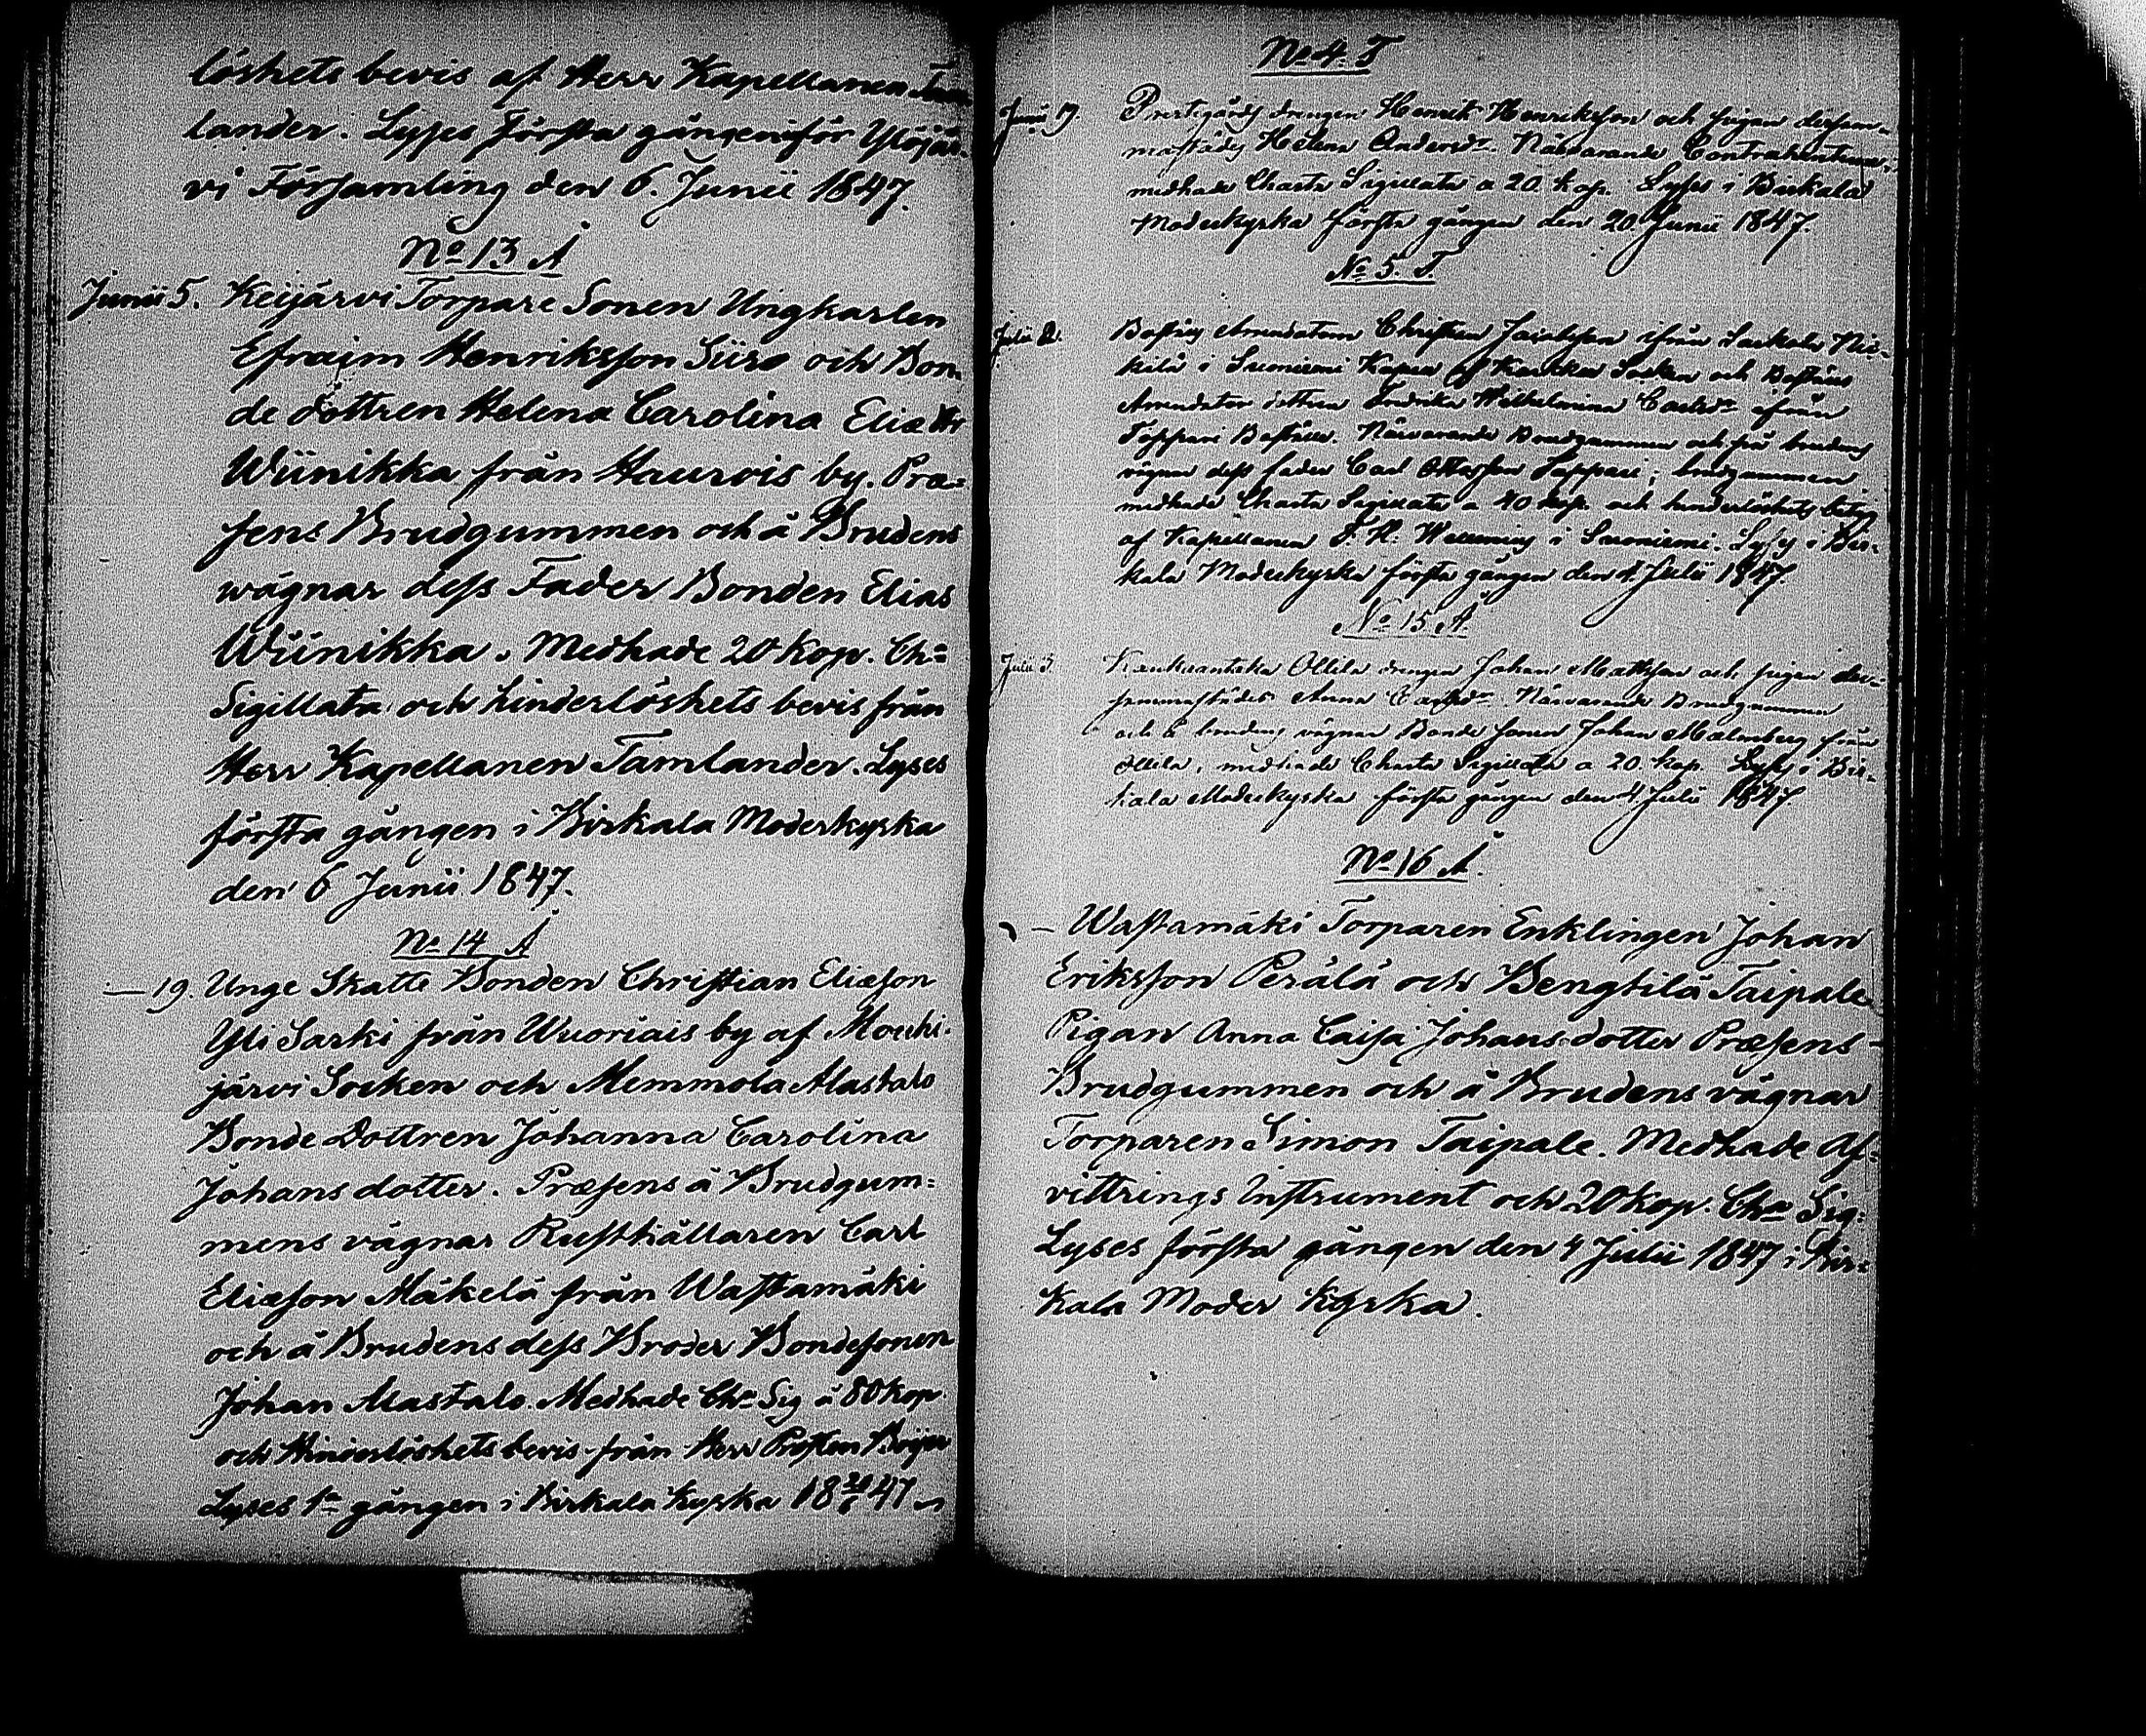 löshets bevis af Herr Kapellanen Tam
lander. Lyses Första gången för Ylöjär-
vi Församling den 6. Junii 1847.
No 13 Å
Junii 5. Keijärvi Torpare Sonen Ungkarlen
Efraim Henriksson Siiro och Bon-
de dottren Helena Carolina Eliædtr
Wiinikka från Haurois by. Præ=
sens Brudgummen och å Brudens
wägnar dess Fader Bonden Elias
Wiinikka. Medhade 20 Kop. Cha
Sigillata och hinderlöshets bevis från
Herr Kapellanen Tamlander. Lyses
första gången i Birkala Moderkyrka
den 6 Junii 1847.
No 14 Å
— 19. Unge Skatte Bonden Christian Eliæson
Yli Sarki från Wuoriais by af Mouhi-
järvi Socken och Memmola Alastalo
Bonde Dottren Johanna Carolina
Johansdotter. Præsens å Brudgum=
mens vägnar Rusthållaren Carl
Eliæson Mäkelä från Wastamäki
och å Brudens dess Broder Bondesonen
Johan Alastalo. Medhade Cha Sig a 80 kop
och Hinderlöshets bevis från Herr Prosten
Lyses 1a gången i Birkala Kyrka 18 20/6 47
No 4. T
Junii 19. Prestegårds drengen Henrik Henriksson och pigan dersam-
mastädes Helena Andersdr. Närvarande Contrahenterne,
medhade Charta Sigillata a 20 kop. Lyses i Birkala
Moderkyrka första gången den 20. Junii 1847.
No 5. T.
Julii 2. Boställs Arrendatorn Christian Jacobsson ifrån Sarkola
kilä i Suoniemi Kapell af Karkku Socken och Boställs
Arrendator dottren Fredrika Wilhelmina Carlsdr ifrån
Toppari Boställe. Närvarande Brudgummen och på brudens
vägnar dess fader Carl Ottosson Toppari; brudgummen
medhade Charta Sigillata a 40 kop. och hinderlöshets betyg
af Kapellanen F. H. i Suoniemi. Lyses i Bir-
kala Moderkyrka första gången den 4 Julii 1847.
No 15 Å.
Julii 3. Ollila drengen Johan Mattsson och pigan der-
sammastädes Anna Carlsdr. Närvarande Brudgummen
och å brudens vägnar Bonde sonen Johan Malmberg från
Ollila, medhade Charta Sigillata a 20 kop. Lyses i Bir-
kala Moderkyrka första gången den 4 Julii 1847
No 16 Å.
— Wastamäki Torparen Enklingen Johan
Eriksson Perälä och Bengtilä Taipale
Pigan Anna Caisa Johansdotter Præsens
Brudgummen och å Brudens vägnar
Torparen Simon Taipale. Medhade Af-
vittrings Instrument och 20 kop. Cha Sig:
Lyses första gången den 4 Julii 1847 i Bir-
kala Moder Kyrka.